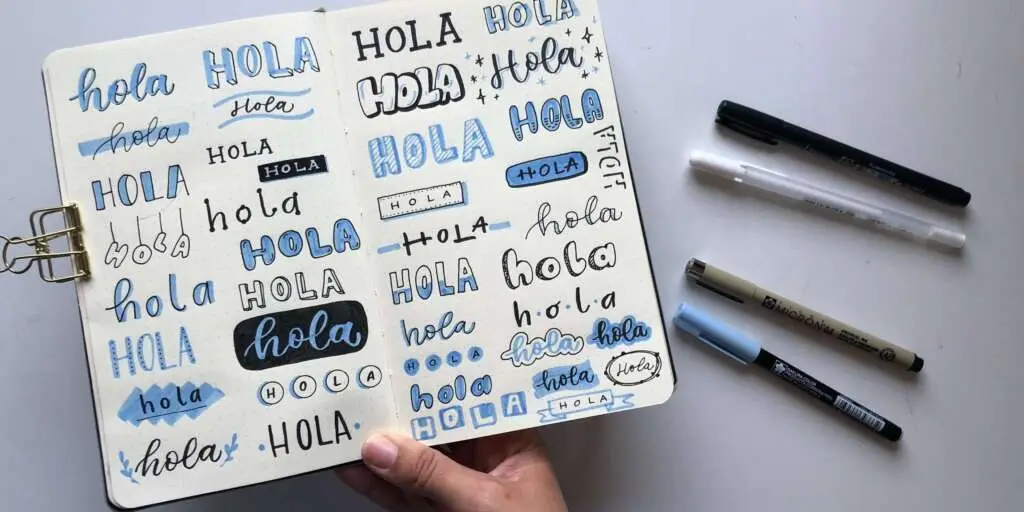 hola
hola
HOLA
HOLA
hola
HOLA
hola
hola
HOLA
Hola
HOLA
HOLA
hola
HOLA
HOLA
hola
HOLA
·HOLA·
HOLA
HOLA
HOLA
HOLA
HOLA
HOLA
hola
HOLA
hola
HOLA
HOLA
Hola
HOLA
HOLA
hola
hola
h·o·l·a
hola hola
hola Hola
HOLA
MICRON